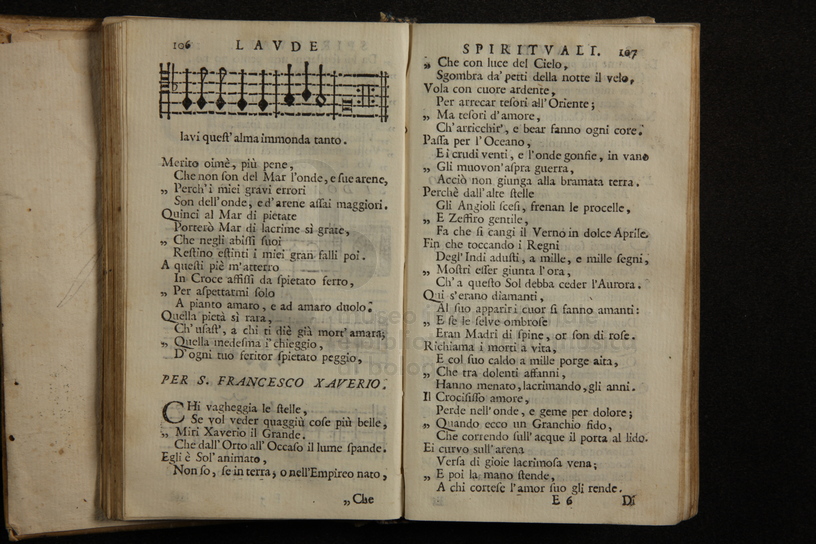 106 LAVDE
lavi queſt' alma immonda tanto.
Merito oimè, più pene,
Che non ſon del Mar l'onde, e ſue arene,
„ Perch' i miei gravi errori
Son dell'onde, ed'arene aſſai maggiori.
Quinci al Mar di pietate
Porterò Mar di lacrime sì grate,
„ Che negli abiſſi ſuoi
Reſtino eſtinti i miei gran falli poi.
A queſti piè m'atterro
In Croce affiſſi da ſpietato ferro,
„ Per aſpettarmi ſolo
A pianto amaro, e ad amaro duolo.
Quella pietà sì rara,
Ch' uſaſt', a chi ti diè già mort' amara;
„ Quella medeſima i' chieggio,
D'ogni tuo feritor ſpietato peggio,
PER S. FRANCESCO XAVERIO.
CHi vagheggia le ſtelle,
Se vol veder quaggiù coſe più belle,
„ Miri Xaverio il Grande.
Che dall'Orto all'Occaſo il lume ſpande.
Egli è Sol' animato,
Non ſo, ſe in terra, o nell'Empireo nato,
„ Che
SPIRITVALI. 107
„ Che con luce del Cielo,
Sgombra da' petti della notte il velo,
Vola con cuore ardente,
Per arrecar teſori all'Oriente;
„ Ma teſori d'amore,
Ch'arricchir', e bear ſanno ogni core.
Paſſa per l'Oceano,
E i crudi venti, e l'onde gonfie, in vano
„ Gli muovon'aſpra guerra,
Acciò non giunga alla bramata terra.
Perchè dall'alte ſtelle
Gli Angioli ſceſi, frenan le procelle,
„ E Zeffiro gentile,
Fa che ſi cangi il Verno in dolce Aprile.
Fin che toccando i Regni
Degl'Indi aduſti, a mille, e mille ſegni,
„ Moſtri eſſer giunta l'ora,
Ch' a queſto Sol debba ceder l'Aurora.
Qui s'erano diamanti,
Al ſuo apparir i cuor ſi fanno amanti:
„ E ſe le ſelve ombroſe
Eran Madri di ſpine, or ſon di roſe.
Richiama i morti a vita,
E col ſuo caldo a mille porge aita,
„ Che tra dolenti affanni,
Hanno menato, lacrimando, gli anni.
Il Crocifiſſo amore,
Perde nell'onde, e geme per dolore;
„ Quando ecco un Granchio fido,
Che correndo ſull'acque il porta al lido.
Ei curvo sull'arena
Verſa di gioie lacrimoſa vena;
„ E poi la mano ſtende,
A chi corteſe l'amor ſuo gli rende.
E 6 Di